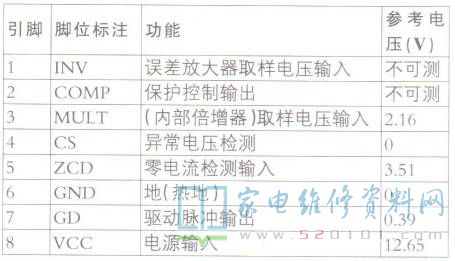 引脚 脚位标注 功能 参考电压(V)
1 INV 误差放大器取样电压输入 不可测
2 COMP 保护控制输出 不可测
3 MULT (内部倍增器)取样电压输入 2.16
4 CS 异常电压检测 0
5 ZCD 零电流检测输入 3.51
6 GND 地(热地) 0
7 GD 驱动脉冲输出 0.39
8 VCC 电源输入 12.65
家电维修资料网